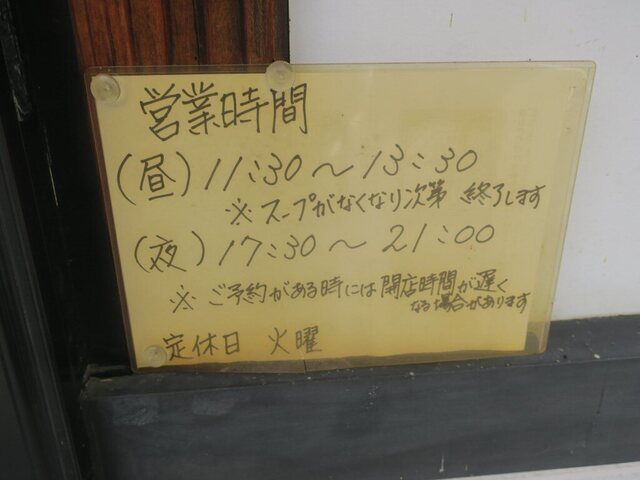 営業時間
(昼) 11:30～13:30
※ スープがなくなり次第 終了します
(夜) 17:30～21:00
※ ご予約がある時には 開店時間が遅く
なる場合があります
定休日 火曜